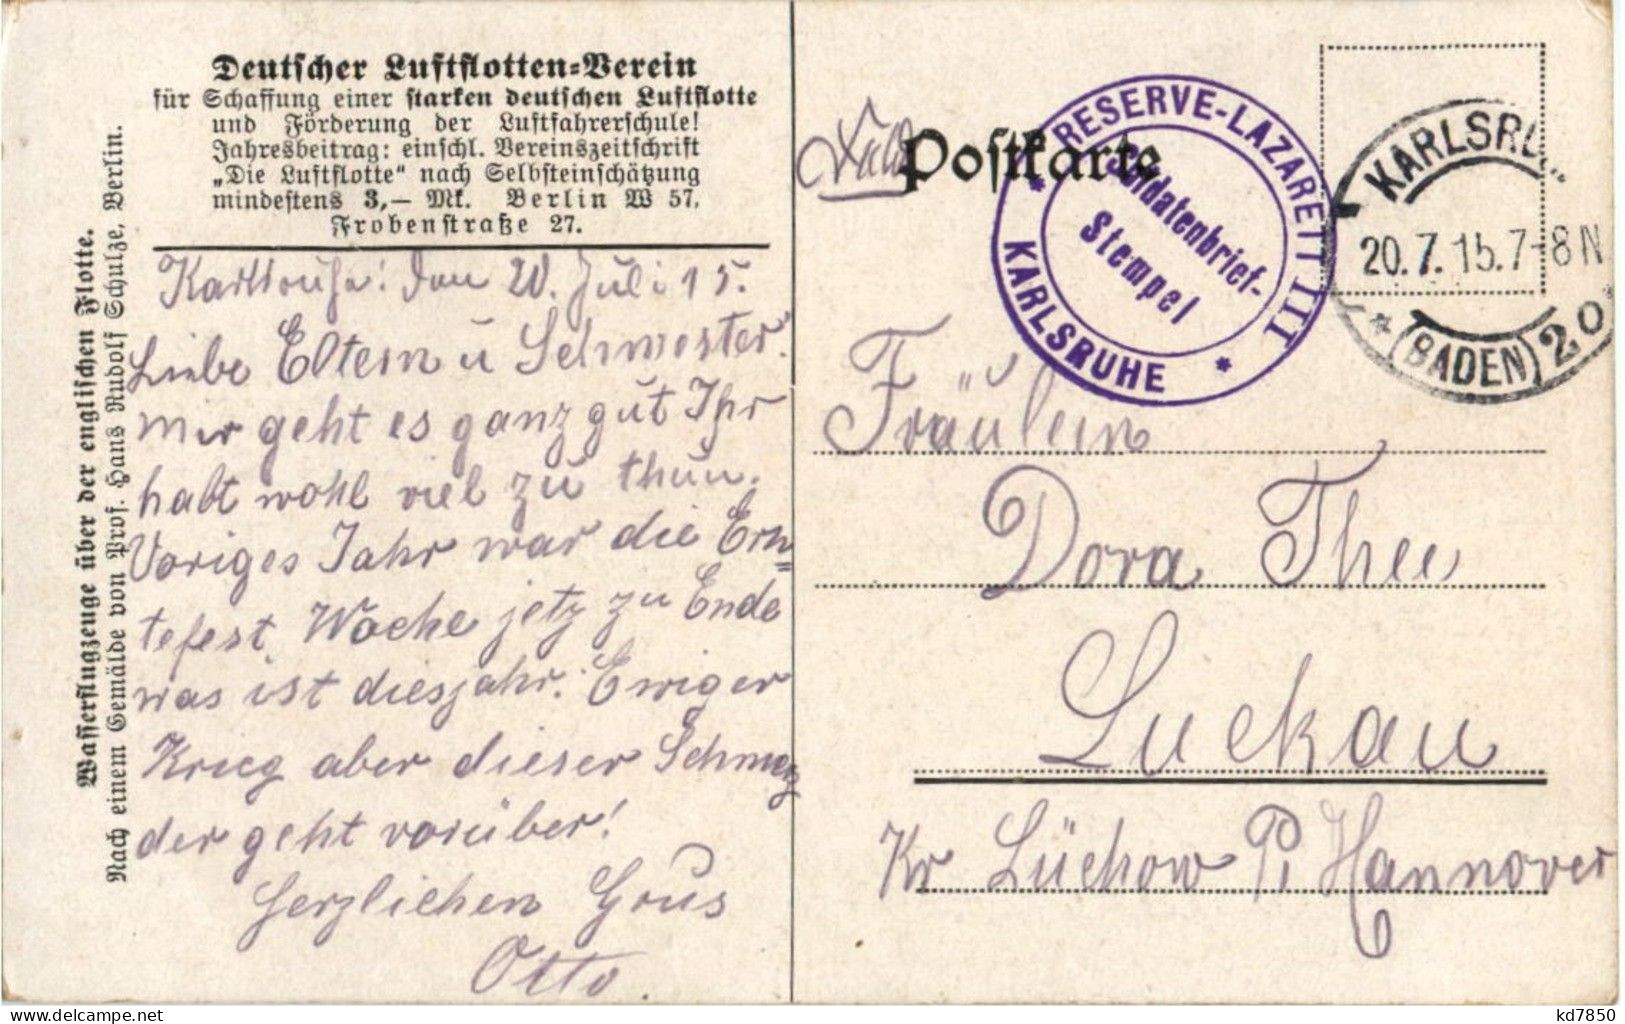 Deutscher Luftflotten-Verein
für Schaffung einer starken deutschen Luftflotte
und Förderung der Luftfahrerschule!
Jahresbeitrag: einschl. Vereinszeitschrift
„Die Luftflotte“ nach Selbsteinschätzung
mindestens 3,— Mk. Berlin W 57,
Frobenstraße 27.
Wasserflugzeuge über der englischen Flotte.
Nach einem Gemälde von Prof. Hans Rudolf Schulze, Berlin.
Karlsruhe! den 20. Juli 15.
Liebe Eltern u Schwester.
mir geht es ganz gut Ihr
habt wohl viel zu thun.
Voriges Jahr war die Ern=
tefest Woche jetz zu Ende
was ist diesjahr. Ewiger
Krieg aber dieser Schmerz
der geht vorüber!
Herzlichen Grus
Otto.
Postkarte
RESERVE-LAZARETT III
* KARLSRUHE *
Soldatenbrief-
Stempel
KARLSRU
20.7.15.7-8N
* (BADEN) 20
Fräulein
Dora Thee
Luckau
Kr Lüchow P. Hannover
kd7850